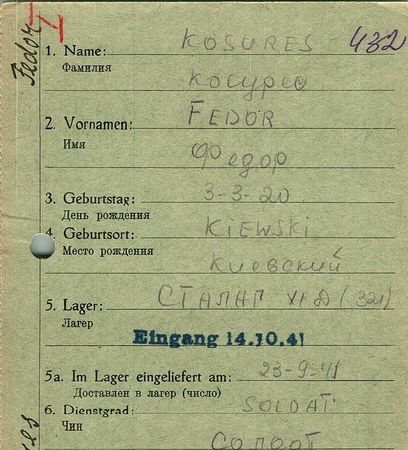 Fedor
432
1. Name: KOSURES
Фамилия
Косурес
2. Vornamen: FEDOR
Имя
Федор
3. Geburtstag: 3-3-20
День рождения
4. Geburtsort: KIEWSKI
Место рождения
Киевский
5. Lager: СТАЛАГ XI D (321)
Лагер
Eingang 14.10.41
5a. Im Lager eingeliefert am: 23-9-41
Доставлен в лагер (число)
6. Dienstgrad: SOLDAT
Чин